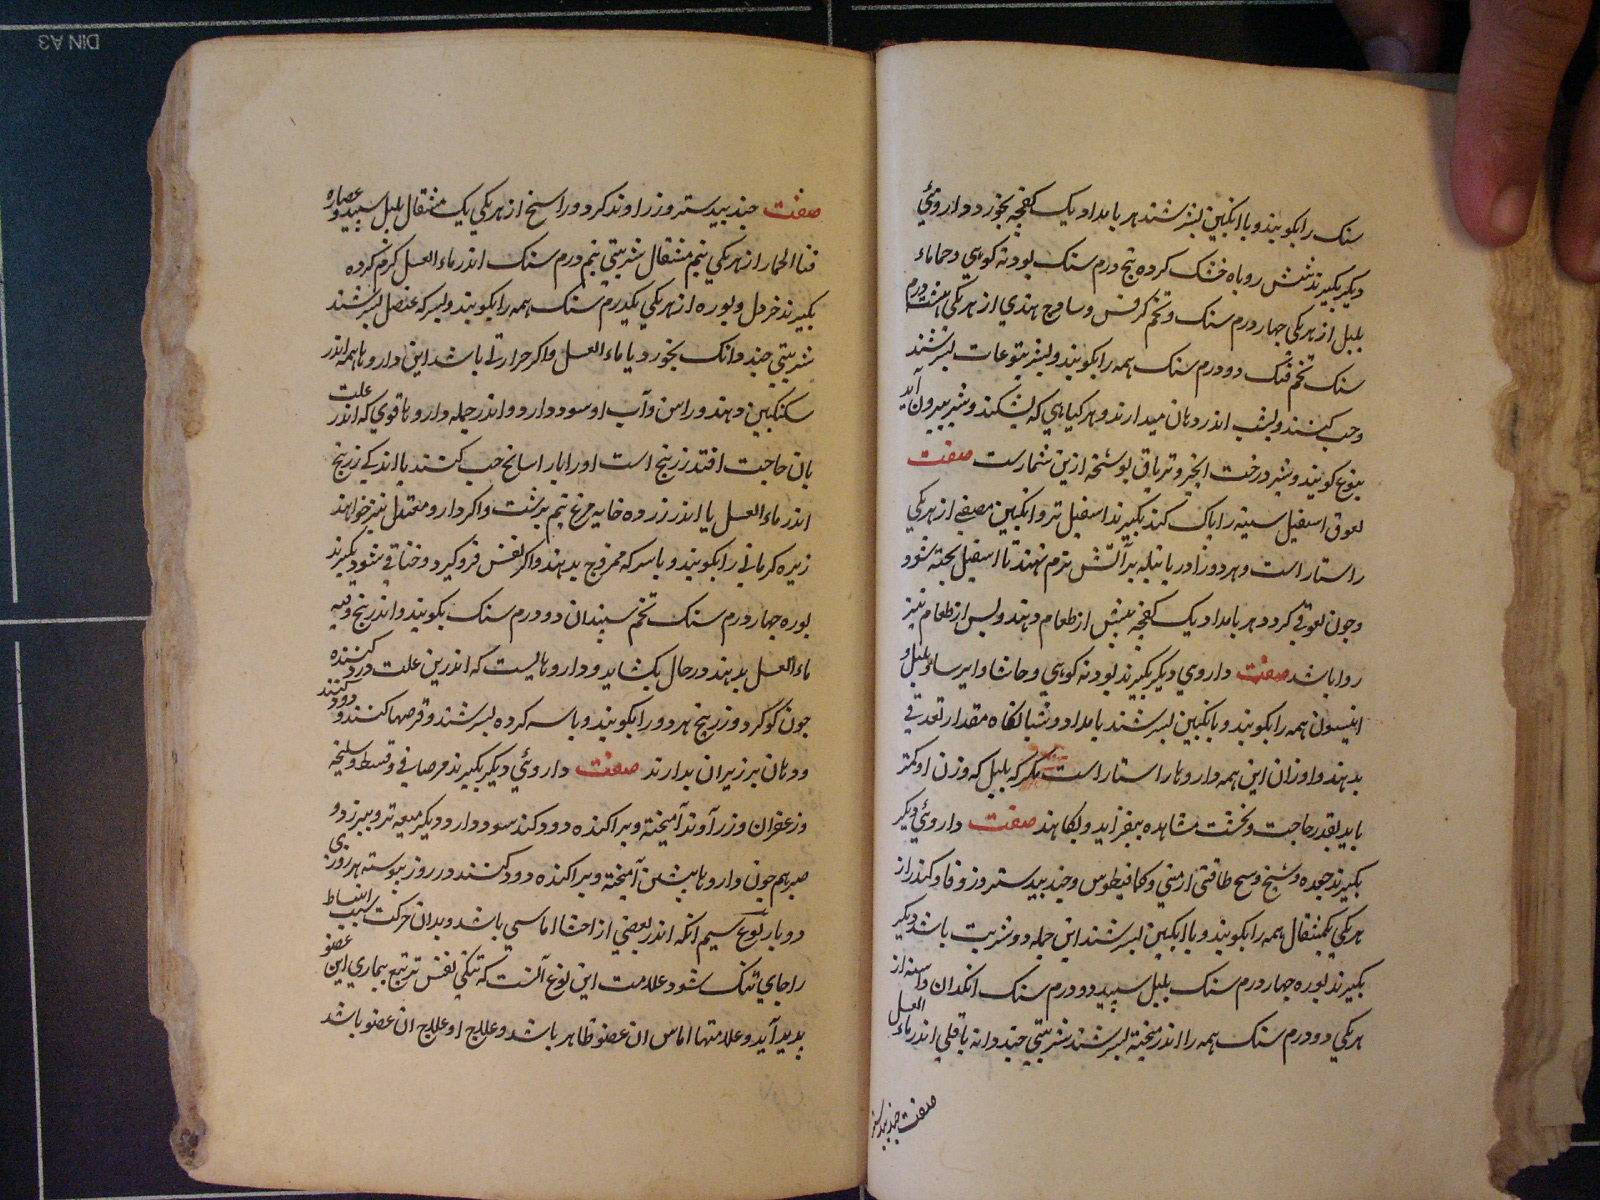 سنک را بکوبند و با انکبین بسرشند هر بامداد یک کفچه بخورد داروئی
دیکر بکیرند شش روباه خشک کرده پنج درم سنک بودنه کوهی و حماماء
بلبل از هر یکی چهار درم سنک و تخم کرفس و ساوج هندی از هر یکی هشت درم
سنک تخم دو درم سنک همه را بکوبند و بشیر یتوعات بسرشند
و حب کنند و بشب اندر دهان میدارند و هر کیاهی که بشکنند و شیر بیرون آید
یتوع کویند و شیر درخت انجیر و تریاق ازین شمارست صفت
لعوق اسفیل سینه را پاک کند بکیرند اسفیل تر و انکبین مصفی از هر یکی
راستاراست و هر دو را در پاتیله بر آتش نرم نهند تا اسفیل پخته شود
و چون لعوقی کردد هر بامداد یک کفچه پیش از طعام دهند و پس از طعام نیز
روا باشد صفت داروی دیکر بکیرند بودنه کوهی و حاشا و ایرسا و بلبل و
انیسون همه را بکوبند و بانکبین بسرشند بامداد و شبانکاه مقدار لعقه
بدهند و اوزان این همه داروها راستاراست مکر که بلبل که وزن او کمتر
باید بقدر حاجت و مشاهده بیفزاید و بکاهند صفت داروئی دیکر
بکیرند جعده و شیح و سح ارمنی و کمافیطوس و جندبیدستر و زوفا و کندر از
هر یکی یکمثقال همه را بکوبند و با انکبین بسرشند این جمله دو شربت باشد دیکر
بکیرند بوره چهار درم سنک بلبل سپید دو درم سنک انکدان از
هر یکی دو درم سنک همه را اندر میخته بسرشند شربتی چند دانه باقلی اندر ماء العسل
صفت جندبیدستر
صفت جندبیدستر و زراوند کرد و راسخ از هر یکی یک مثقال بلبل سپید و عصاره
قثاالحمار از هر یکی نیم مثقال شربتی نیم درم سنک اندر ماءالعسل کرم کرده
بکیرند خردل و بوره از هر یکی یکدرم سنک همه را بکوبند و بسرکه عنصل بسرشند
شربتی چند دانک بخورد با ماءالعسل و اکر حرارتی باشد این داروها همه اندر
سکنکبین دهند و راسن و آب او سود دارد و اندر جمله داروها قوی که اندر علت
بان حاجت افتد زرنیخ است او را با حب کنند یا اندکی زرنیخ
اندر ماءالعسل یا اندر زرده خایه مرغ نیم برشت و اکر دارو معتدل تر خواهند
زیره کرمانی را بکوبند و با سرکه ممزوج بدهند و اکر نفس فرو کیرد و خناقی شود بکیرند
بوره چهار درم سنک تخم سپندان دو درم سنک بکوبند و اندر پنج وقیه
ماءالعسل بدهند در حال بکشاید و داروهائیست که اندرین علت دود کننده
چون کوکرد و زرنیخ هر دو را بکوبند و با پیه کرده بسرشند و قرصها کنند و دود کنند
و دهان بر زبران بدارند صفت داروئی دیکر بکیرند مرصافی و قسط و سلیخه
و زعفران و زرآوند آمیخته و پراکنده دود کنند سود دارد و دیکر میعه تر و بیرزد و
صبر هم چون داروها پیشین آمیخته و پراکنده دود کنند و در روز پیوسته هر روزی
دو بار نوع سیم انکه اندر بعضی از احشا اماسی باشد و بدان حرکت سبب انبساط
را جای تنک شود علامت این نوع آنست که تنکی نفس تر تبع بیماری این عضو
پدید آید و علامتها اماس ان عضو ظاهر باشد و علاج او علاج ان عضو باشد
DIN A3